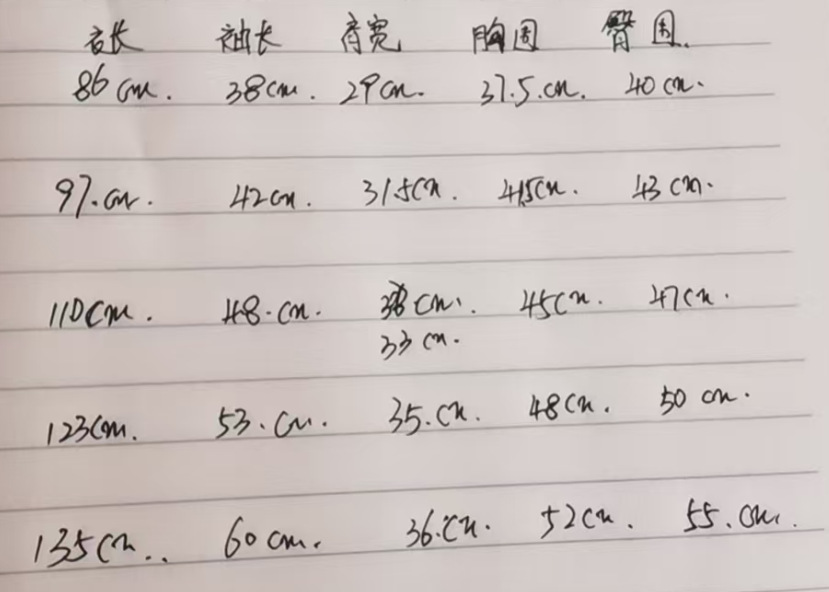 衣长 袖长 肩宽 胸围 臀围.
86cm. 38cm. 29cm. 37.5.cm. 40cm.
97.cm. 42cm. 31.5cm. 41.5cm. 43cm.
110cm. 48.cm. cm. 45cm. 47cm.
33cm.
123cm. 53.cm. 35.cm. 48cm. 50cm.
135cm.. 60cm. 36.cm. 52cm. 55.cm.